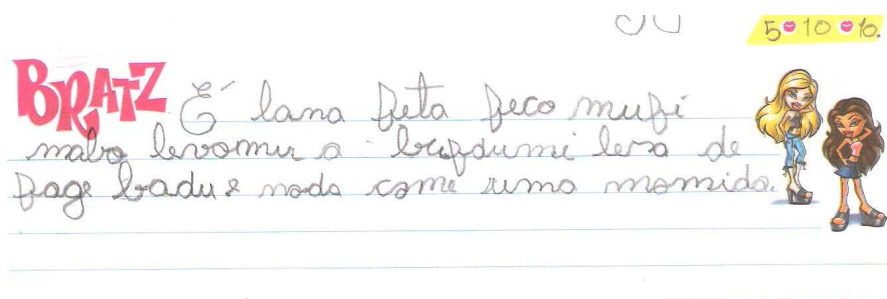 5 10 10.
BRATZ
É lana feta feco mufi
mabo levomu a levo de
fage badu e nada come uma mamida.